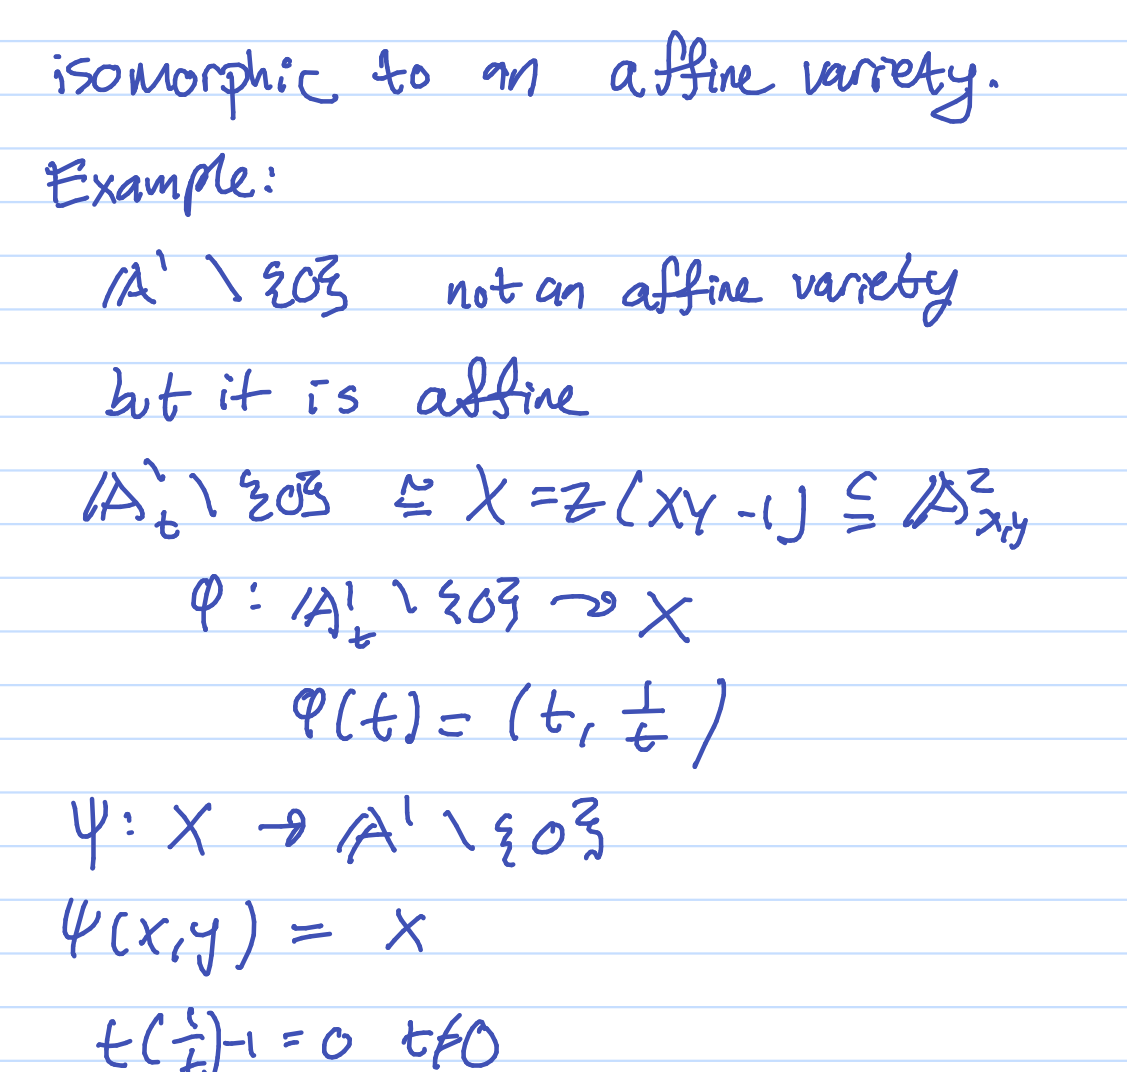 isomorphic to an affine variety.
Example:
𝔸¹ \ {0} not an affine variety
but it is affine
𝔸¹ₜ \ {0} ≅ X = Z(xy - 1) ⊆ 𝔸²ₓ,ᵧ
φ : 𝔸¹ₜ \ {0} → X
φ(t) = (t, 1/t)
ψ : X → 𝔸¹ \ {0}
ψ(x,y) = x
t(1/t) - 1 = 0 t ≠ 0